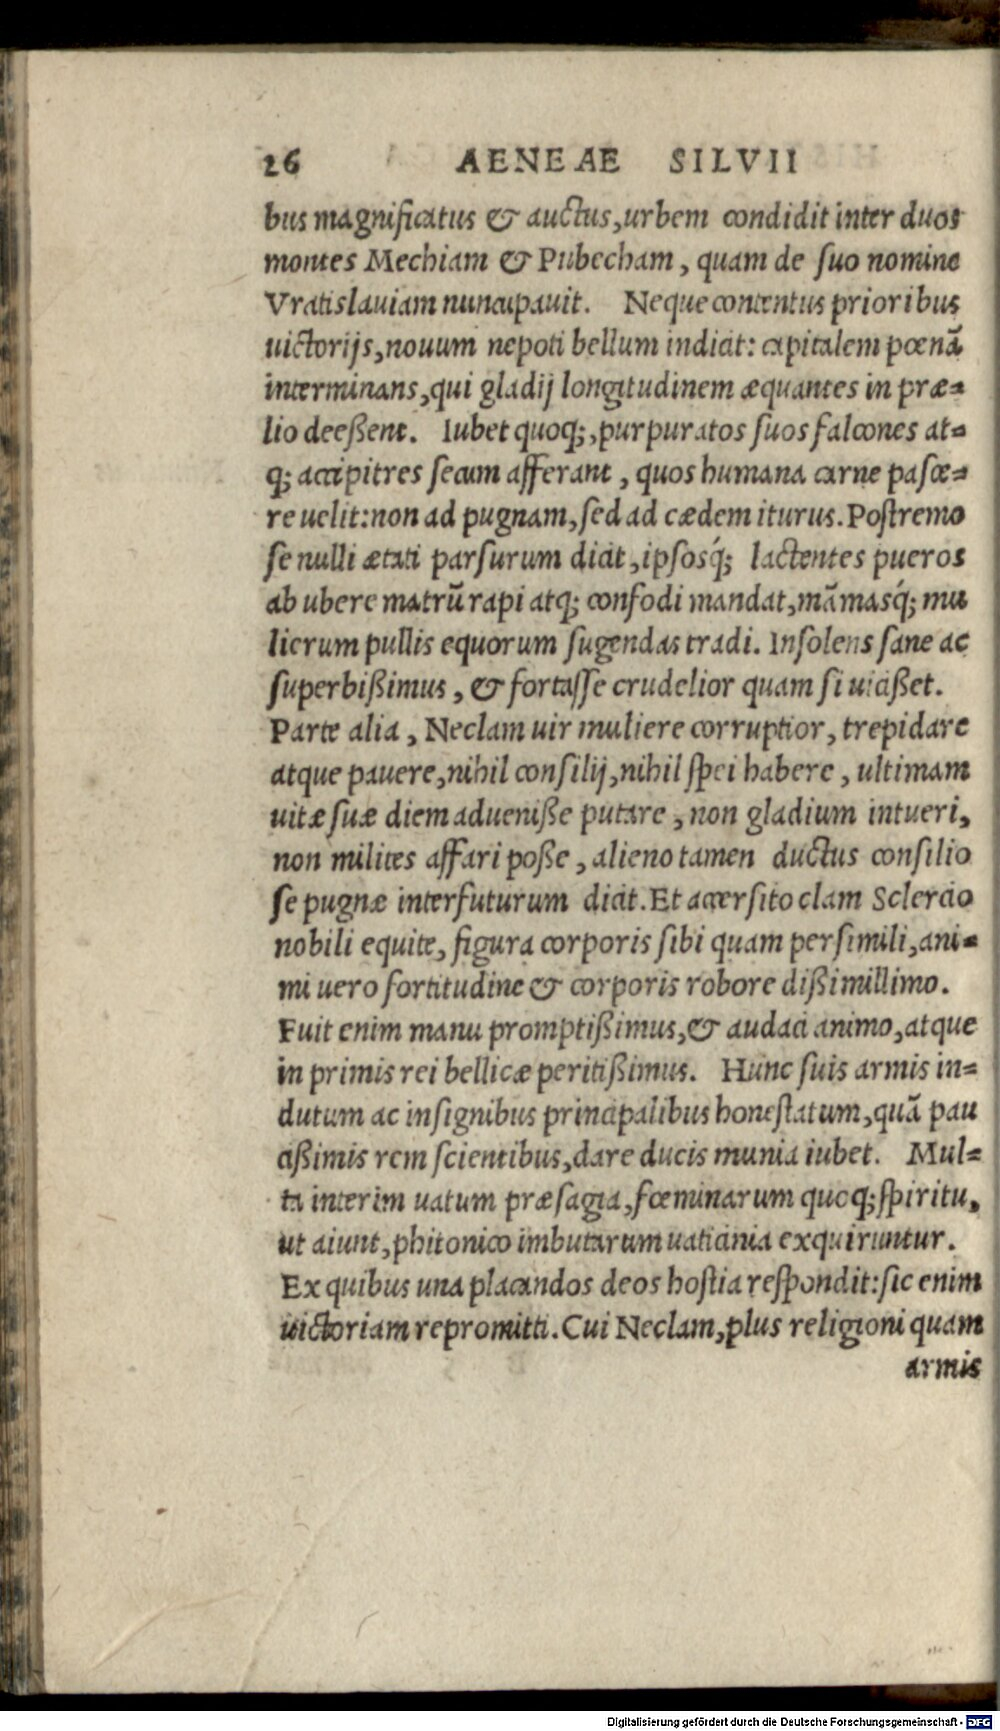 26 AENEAE SILVII
bus magnificatus & auctus, urbem condidit inter duos
montes Mechiam & Pubecham, quam de ſuo nomine
Vratislauiam nuncupauit. Neque contentus prioribus
uictorijs, nouum nepoti bellum indicit: capitalem pœnã
interminans, qui gladij longitudinem æquantes in præ-
lio deeßent. Iubet quoq;, purpuratos ſuos falcones at-
q; accipitres ſecum afferant, quos humana carne paſce-
re uelit: non ad pugnam, ſed ad cædem iturus. Poſtremo
ſe nulli ætati parſurum dicit, ipſosq́; lactentes pueros
ab ubere matrũ rapi atq; confodi mandat, mãmasq́; mu
lierum pullis equorum ſugendas tradi. Inſolens ſane ac
ſuperbißimus, & fortaſſe crudelior quam ſi uicißet.
Parte alia, Neclam uir muliere corruptior, trepidare
atque pauere, nihil conſilij, nihil ſpei habere, ultimam
uitæ ſuæ diem adueniße putare, non gladium intueri,
non milites affari poße, alieno tamen ductus conſilio
ſe pugnæ interfuturum dicit. Et accerſito clam Sclercio
nobili equite, figura corporis ſibi quam perſimili, ani-
mi uero fortitudine & corporis robore dißimillimo.
Fuit enim manu promptißimus, & audaci animo, atque
in primis rei bellicæ peritißimus. Hunc ſuis armis in-
dutum ac inſignibus principalibus honeſtatum, quã pau
cißimis rem ſcientibus, dare ducis munia iubet. Mul-
ta interim uatum præſagia, fœminarum quoq; ſpiritu,
ut aiunt, phitonico imbutarum uaticinia exquiruntur.
Ex quibus una placandos deos hoſtia reſpondit: ſic enim
uictoriam repromitti. Cui Neclam, plus religioni quam
armis
Digitalisierung gefördert durch die Deutsche Forschungsgemeinschaft - DFG